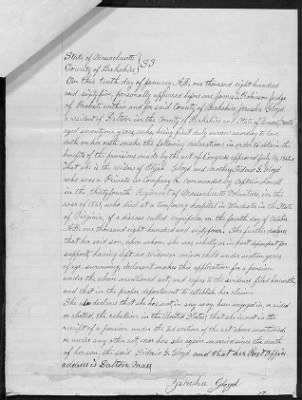 State of Massachusetts } SS
County of Berkshire
On this tenth day of January A.D. one thousand eight hundred
and sixty five, personally appeared before me James T. Robinson Judge
of Probate within and for said County of Berkshire, Jerusha Gloyd
a resident of Dalton in the County of Berkshire and State of Massachusetts
aged seventy years, who, being first duly sworn according to law,
doth on her oath make the following declaration in order to obtain the
benefits of the provisions made by the act of Congress approved July 14, 1862
That she is the widow of Gloyd and mother of Gloyd
who was a Private in Company K. Commanded by Captain
in the thirty fourth Regiment of Massachusetts Volunteers, in the
war of 1861, who died at a temporary hospital in Winchester in the State
of Virginia, of a disease called erysipelas, on the fourth day of October
A.D. one thousand eight hundred and sixty four. She further declares
that her said son, upon whom she was wholly or in part dependent for
support having left no widow or minor child under sixteen years
of age surviving, declarant makes this application for a pension
under the above mentioned act, and refers to the evidence filed herewith,
and that in the proper department to establish her claim.
She also declares that she has not, in any way, been engaged in, or aided
or abetted, the rebellion in the United States; that she is not in the
receipt of a pension under the 2d section of the act above mentioned
or under any other act, nor has she again married since the death
of her son, the said Gloyd and that her Post Office
address is Dalton Mass
Jerusha Gloyd